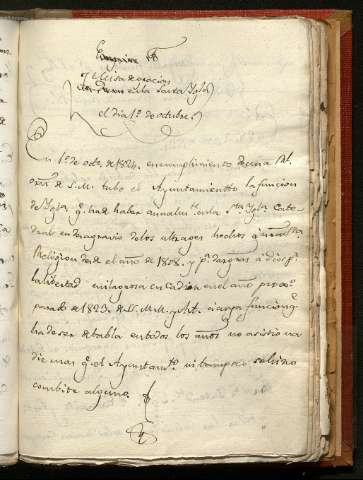 y Misa de gracias
en la Santa Ygla
el dia 1º de octubre.
En 1º de oct.e de 1824. en cumplimiento de una Rl.
orn. de S.M. tubo el Ayuntamiento la funcion
de Ygla. q.e ha de haber annualm.te en la Sta. Ygla. Cate
dral en desagravio de los ultrages hechos a nra. Sta.
Religion desde el año de 1808. y p.a dar gras. a Dios p.r
la libertad milagrosa en Cadiz en el año prox.o
pasado de 1823. de SS. MM. y AA. a cuya funcion q.e
ha de ser de tabla en todos los años no asistio na
die mas q.e el Ayuntam.to ni tampoco se hizo
combite alguno.